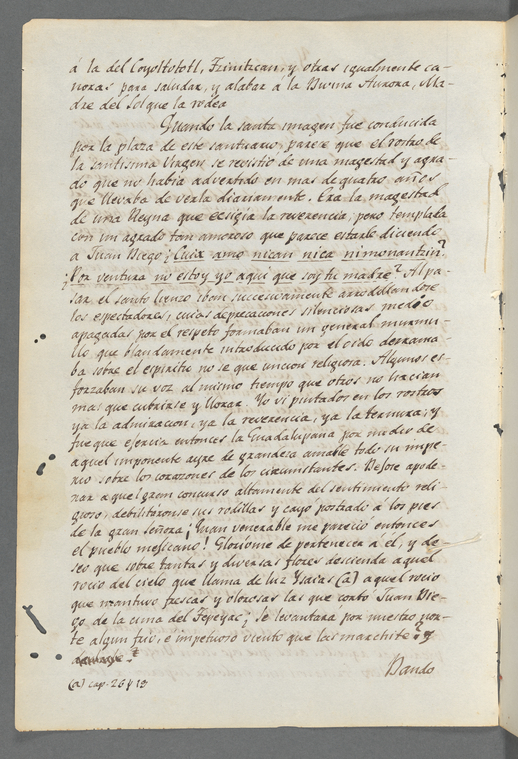 á la del Coyoltototl, Tzinitzcan, y otras igualmente ca-
noras para saludar, y alabar á la Divina Aurora, Ma-
dre del Sol que la rodea
Quando la santa imagen fue conducida
por la plaza de este santuario, parece que el rostro de
la santisima Virgen se revistio de una magestad y agra-
do que no habia advertido en mas de quatro años
que llevaba de verla diariamente. Era la magestad
de una Reyna que ecsigia la reverencia, pero templada
con un agrado tam amoroso que parece estarle diciendo
á Juan Diego ¿Cuix amo nican nica nimonantzin?
¿Por ventura no estoy yo aqui que soy tu madre? Al pa-
sar el santo lienzo iban succesivamente arrodillandose
los espectadores, cuias deprecaciones silenciosas medio
apagadas por el respeto formaban un general murmu-
llo que blandamente introducido por el oido derrama-
ba sobre el espiritu no se que uncion religiosa. Algunos es-
forzaban su voz al mismo tiempo que otros no hacian
mas que cubrirse y llorar. Yo vi pintados en los rostros
ya la admiracion, ya la reverencia, ya la ternura, y
fue que ejercia entonces la Guadalupana por medio de
aquel imponente ayre de grandesa amable todo su impe-
rio sobre los corazones de los circunstantes. Dejose apode-
rar aquel gran concurso altamente del sentimiento reli-
gioso, debilitaronse sus rodillas y cayo postrado á los pies
de la gran señora ¡Quan venerable me parecio entonces
el pueblo mejicano! Gloriome de pertenecer á él, y de-
seo que sobre tantas y diversas flores descienda aquel
rocio del cielo que llama de luz Ysaias (a) aquel rocio
que mantuvo frescas y olorosas las que cortó Juan Die-
go de la cima del Tepeyac; se levantará por nuestro nor-
te algun frio, é impetuoso viento que las marchite? y
Bando
(a) cap. 26 y 19